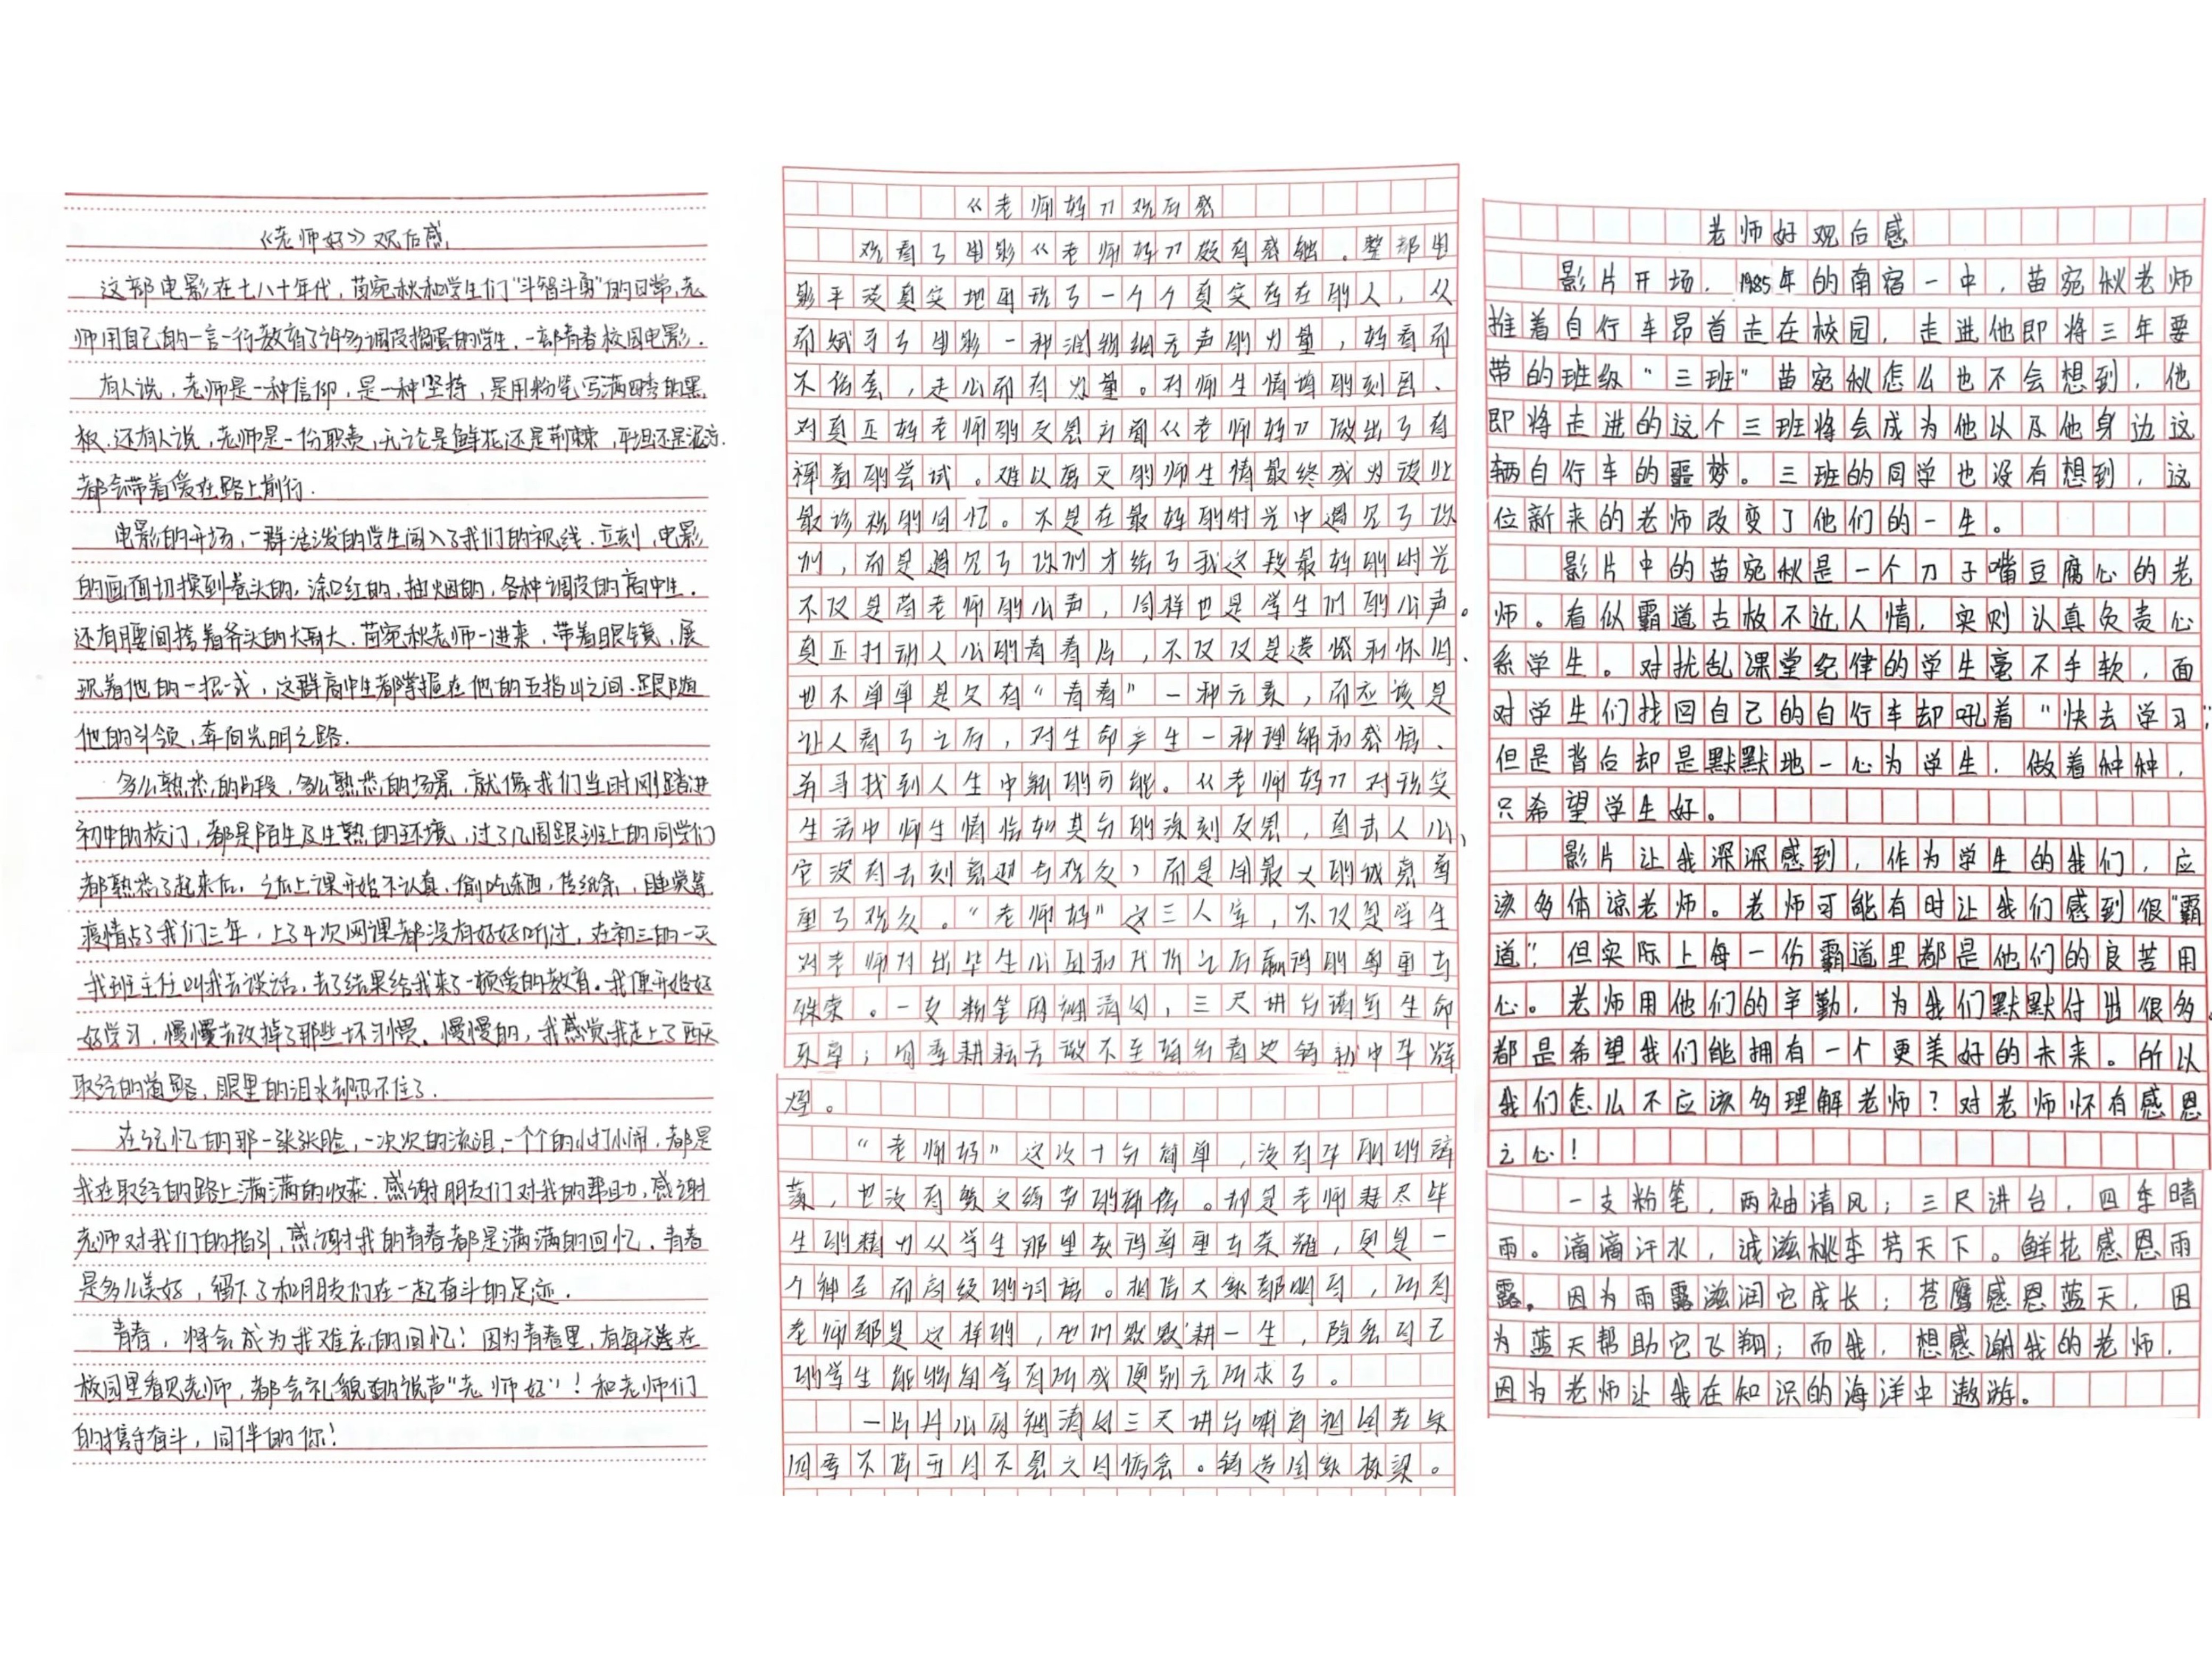 《老师好》观后感
这部电影在七八十年代，苗宛秋和学生们“斗智斗勇”的日常，老
师用自己的一言一行教育了许多调皮捣蛋的学生，一部青春校园电影.
有人说，老师是一种信仰，是一种坚持，是用粉笔写满四季的黑
板.还有人说，老师是一份职责，无论是鲜花还是荆棘，平坦还是泥泞.
都会带着爱在路上前行.
电影的开场，一群活泼的学生闯入了我们的视线.立刻，电影
的画面切换到卷头的，涂口红的，抽烟的，各种调皮的高中生.
还有腰间挎着斧头的大哥大.苗宛秋老师一进来，带着眼镜，展
现着他的一招一式，这群高中生都掌握在他的五指山之间.跟随
他的引领，奔向光明之路.
多么熟悉的片段，多么熟悉的场景，就像我们当时刚踏进
初中的校门，都是陌生及生熟的环境，过了几周跟班上的同学们
都熟悉了起来后.之后上课开始不认真，偷吃东西，传纸条，睡觉等
疫情占了我们三年，上了4次网课都没有好好听过，在初三的一天
我班主任叫我去谈话，去了结果给我来了一顿爱的教育。我便开始好
好学习，慢慢去改掉了那些坏习惯。慢慢的，我感觉我走上了西天
取经的道路，眼里的泪水都忍不住了.
在记忆的那一张张脸，一次次的流泪，一个个的小打小闹，都是
我在取经的路上满满的收获.感谢朋友们对我的帮助，感谢
老师对我们的指引，感谢我的青春都是满满的回忆.青春
是多么美好，留下了和朋友们在一起奋斗的足迹.
青春，将会成为我难忘的回忆！因为青春里，有每天送在
校园里看见老师，都会礼貌的说声“老师好”！和老师们
的携手奋斗，同伴的你！
《老师好》观后感
观看了电影《老师好》颇有感触。整部电
影平淡真实地再现了一个个真实存在的人，从
而赋予了电影一种润物细无声的力量，好看而
不俗套，走心而有力量。对师生情谊的刻画、
对真正好老师的反思方面《老师好》做出了有
裨益的尝试。难以磨灭的师生情最终成为彼此
最珍视的回忆。不是在最好的时光中遇见了你
们，而是遇见了你们才给了我这段最好的时光
不仅是苗老师的心声，同样也是学生们的心声。
真正打动人心的青春片，不仅仅是遗憾和怀旧、
也不单单是只有“青春”一种元素，而应该是
让人看了之后，对生命产生一种理解和感悟、
并寻找到人生中新的可能。《老师好》对现实
生活中师生情恰如其分的深刻反思，直击人心，
它没有去刻意迎合观众，而是用最大的诚意尊
重了观众。“老师好”这三个字，不仅是学生
对老师付出毕生心血和代价之后赢得的尊重与
殊荣。一支粉笔两袖清风，三尺讲台谱写生命
乐章；四季耕耘无微不至独有青史铸就中华辉
煌。
“老师好”这次十分简单，没有华丽的辞
藻，也没有繁文缛节的称谓。却是老师耗尽毕
生的精力从学生那里获得尊重与荣耀，更是一
个神圣而高级的词语。相信大家都明白，所有
老师都是这样的，他们默默耕一生，除给自己
的学生能够有学有所成便别无所求了。
一片丹心两袖清风三尺讲台哺育祖国花朵
四季不离五日不思六日恼会。铸造国家栋梁。
老师好观后感
影片开场，1985年的南宿一中，苗宛秋老师
推着自行车昂首走在校园，走进他即将三年要
带的班级“三班”苗宛秋怎么也不会想到，他
即将走进的这个三班将会成为他以及他身边这
辆自行车的噩梦。三班的同学也没有想到，这
位新来的老师改变了他们的一生。
影片中的苗宛秋是一个刀子嘴豆腐心的老
师。看似霸道古板不近人情，实则认真负责心
系学生。对扰乱课堂纪律的学生毫不手软，面
对学生们找回自己的自行车却吼着“快去学习”，
但是背后却是默默地一心为学生，做着种种，
只希望学生好。
影片让我深深感到，作为学生的我们，应
该多体谅老师。老师可能有时让我们感到很“霸
道”，但实际上每一份霸道里都是他们的良苦用
心。老师用他们的辛勤，为我们默默付出很多，
都是希望我们能拥有一个更美好的未来。所以
我们怎么不应该多理解老师？对老师怀有感恩
之心！
一支粉笔，两袖清风；三尺讲台，四季晴
雨。滴滴汗水，诚滋桃李芳天下。鲜花感恩雨
露，因为雨露滋润它成长；苍鹰感恩蓝天，因
为蓝天帮助它飞翔；而我，想感谢我的老师，
因为老师让我在知识的海洋中遨游。